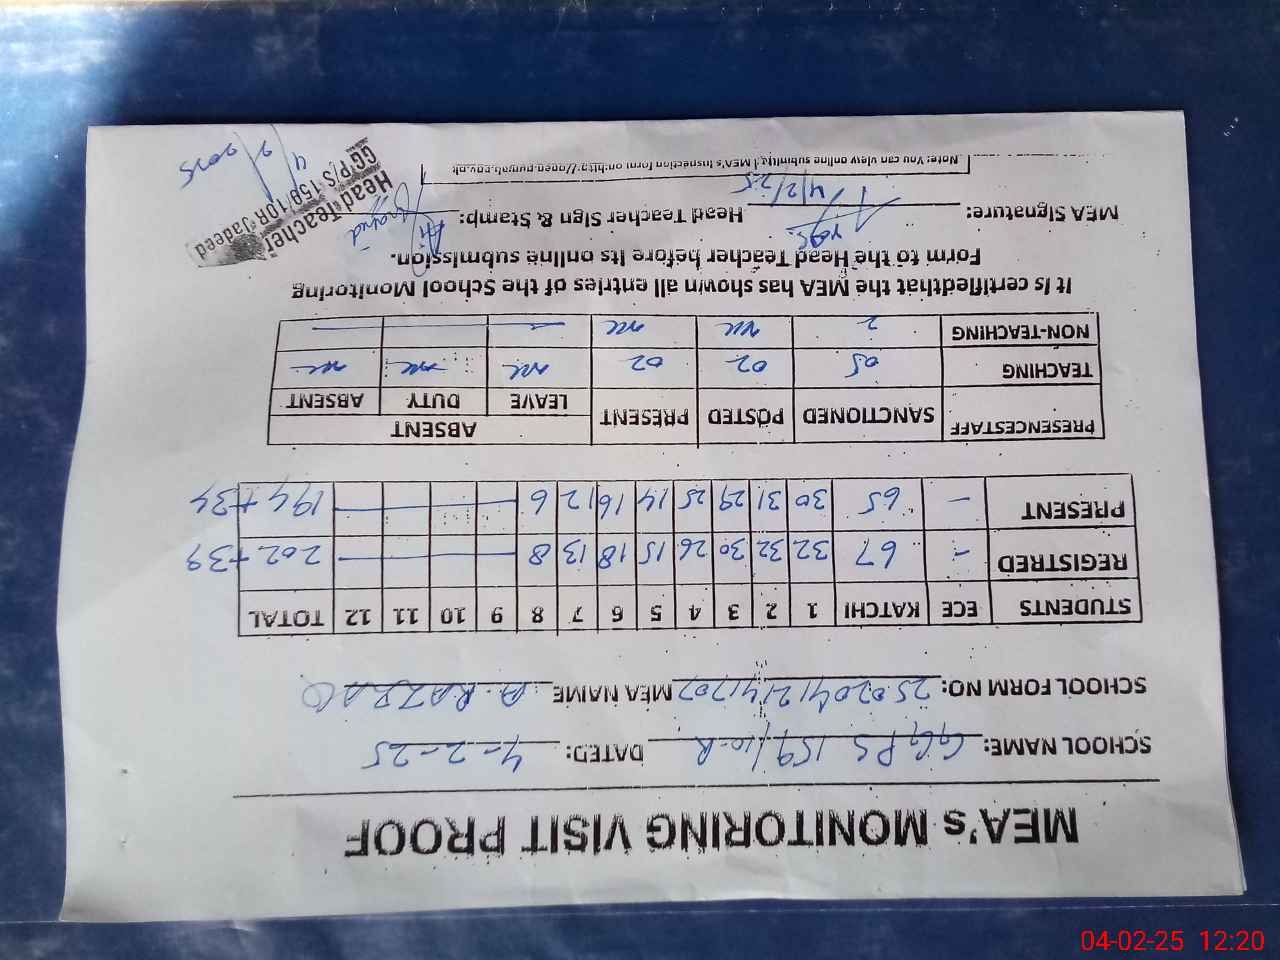 MEA's MONITORING VISIT PROOF
SCHOOL NAME: GGPS 159/10-R DATED: 4-2-25
SCHOOL FORM NO: MEA NAME A. RAZZAQ
STUDENTS ECE KATCHI 1 2 3 4 5 6 7 8 9 10 11 12 TOTAL
REGISTRED - 67 32 32 30 26 15 18 13 8 202+39
PRESENT - 65 30 31 29 25 14 16 12 6 194+34
PRESENCESTAFF SANCTIONED POSTED PRESENT ABSENT
LEAVE DUTY ABSENT
TEACHING 05 02 02 nil nil nil
NON-TEACHING 2 nil nil
It is certifiedthat the MEA has shown all entries of the School Monitoring
Form to the Head Teacher before its online submission.
MEA Signature: 4/2/25 Head Teacher Sign & Stamp:
Head Teacher
GGP/S 159/10R Jadeed
4/2/2025
Note: You can view online submitted MEA's Inspection form on:http://open.punjab.gov.pk
04-02-25 12:20